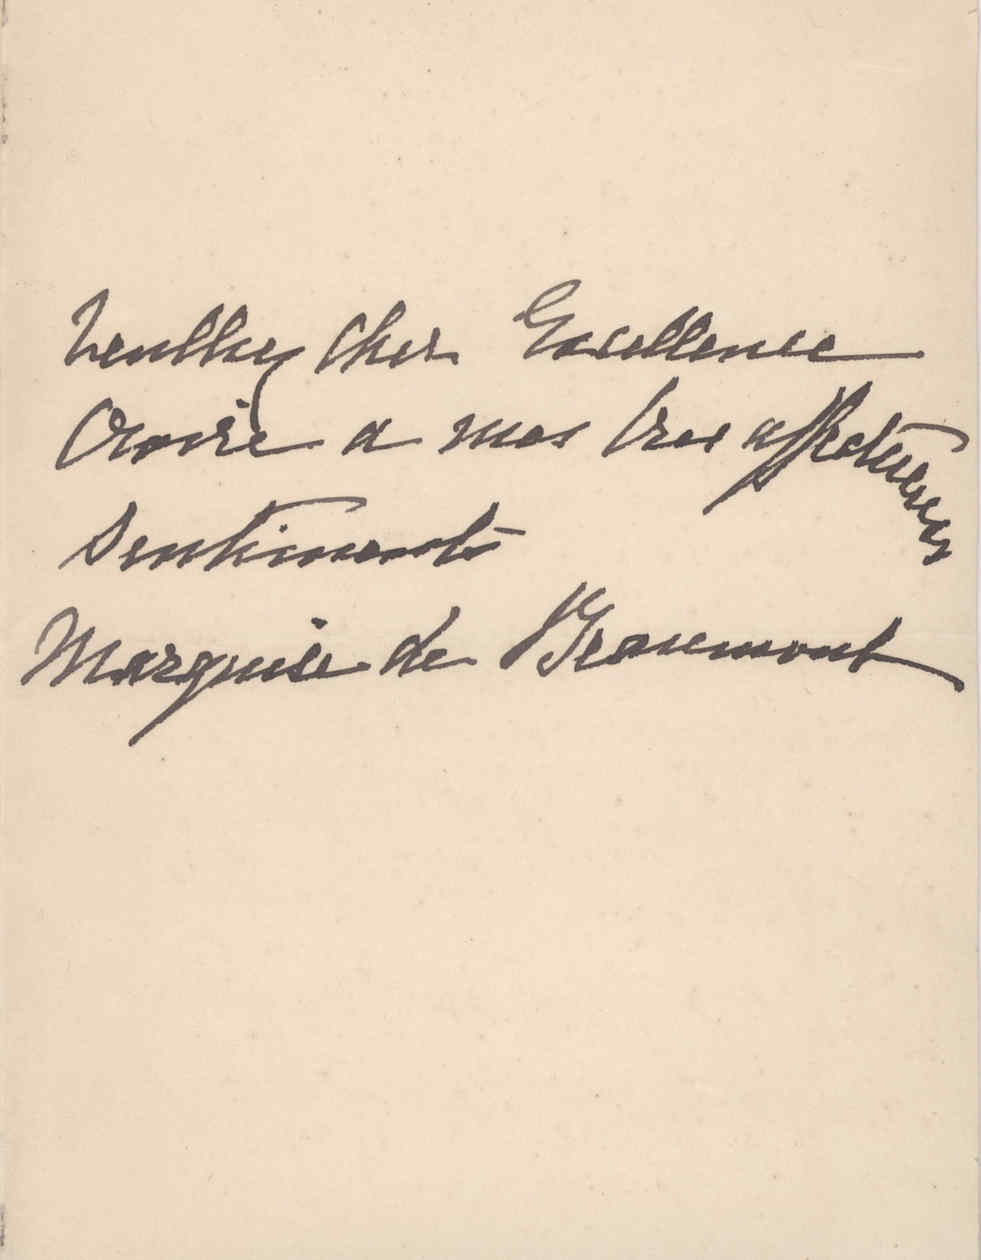 Veuillez cher Excellence
Croire a mes tres affectueux
sentiments
Marquise de Beaumont